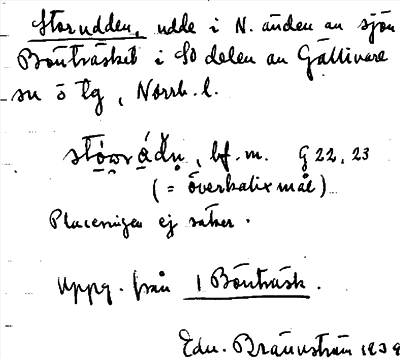 Storudden, udde i N. änden av sjön
Bönträsket i SO delen av Gällivare
sn o tg, Norrb. l.
bf. m. G 22, 23
(= överkalixmål)
Placeringen ej säker.
Uppg. från 1 Bönträsk.
Edv. Brännström 1939